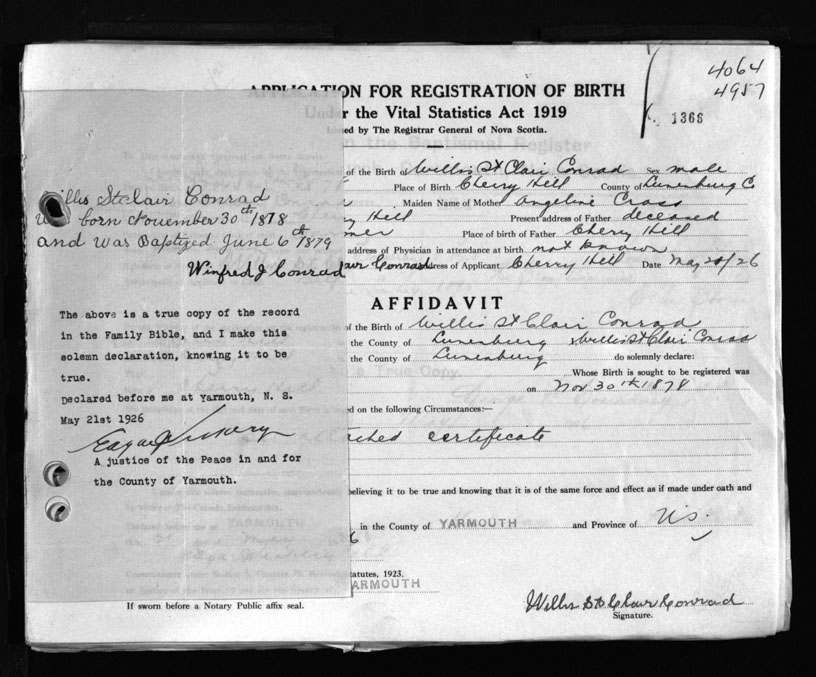 4064
4957
1368
APPLICATION FOR REGISTRATION OF BIRTH
Under the Vital Statistics Act 1919
Issued by The Registrar General of Nova Scotia.
of the Birth of Willis St Clair Conrad Sex male
Place of Birth Cherry Hill County of Lunenburg C
Maiden Name of Mother Angeline Cross
Hill Present address of Father deceased
mer Place of birth of Father Cherry Hill
address of Physician in attendance at birth not known
Conrad address of Applicant Cherry Hill Date May 21/26
AFFIDAVIT
of the Birth of Willis St Clair Conrad
the County of Lunenburg Willis St Clair Conrad
the County of Lunenburg do solemnly declare:
Whose Birth is sought to be registered was
on Nov 30th 1878
ed on the following Circumstances:—
attached certificate
believing it to be true and knowing that it is of the same force and effect as if made under oath and
in the County of YARMOUTH and Province of N.S.
tatutes, 1923.
YARMOUTH
If sworn before a Notary Public affix seal.
Willis St Clair Conrad
Signature.
Willis St Clair Conrad
was born November 30th 1878
and was Baptized June 6th 1879
Winfred J Conrad
The above is a true copy of the record
in the Family Bible, and I make this
solemn declaration, knowing it to be
true.
Declared before me at Yarmouth, N. S.
May 21st 1926
A justice of the Peace in and for
the County of Yarmouth.